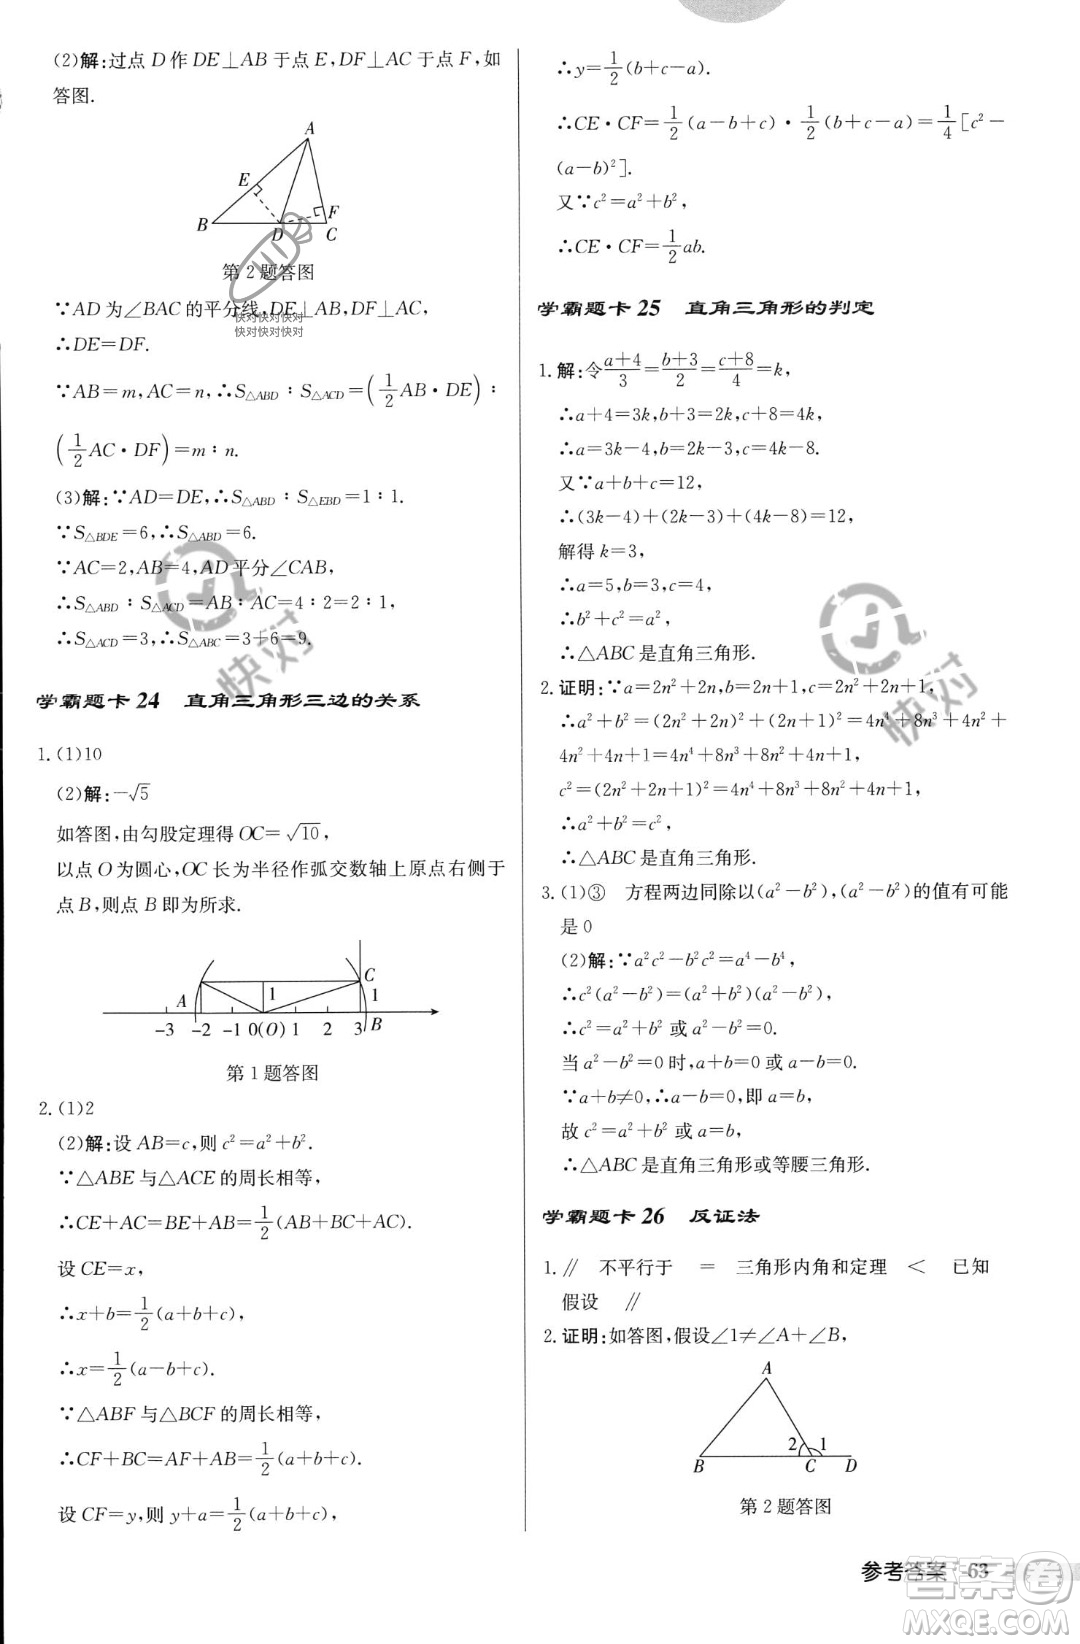 (2)解:过点 D 作 DE⊥AB 于点 E,DF⊥AC 于点 F,如
答图.
A
E
F
B
D
C
第 2 题答图
∵AD 为∠BAC 的平分线,DE⊥AB,DF⊥AC,
快对快对快对
快对快对快对
∴DE=DF.
∵AB=m,AC=n,∴S△ABD∶S△ACD=(1/2 AB·DE)∶
(1/2 AC·DF)=m∶n.
(3)解:∵AD=DE,∴S△ABD∶S△EBD=1∶1.
∵S△BDE=6,∴S△ABD=6.
∵AC=2,AB=4,AD 平分∠CAB,
∴S△ABD∶S△ACD=AB∶AC=4∶2=2∶1,
∴S△ACD=3,∴S△ABC=3+6=9.
快对
学霸题卡 24 直角三角形三边的关系
1.(1)10
(2)解:-√5
如答图,由勾股定理得 OC=√10,
以点 O 为圆心,OC 长为半径作弧交数轴上原点右侧于
点 B,则点 B 即为所求.
A
C
1
1
-3 -2 -1 0(O) 1 2 3 B
第 1 题答图
2.(1)2
(2)解:设 AB=c,则 c²=a²+b².
∵△ABE 与△ACE 的周长相等,
∴CE+AC=BE+AB=1/2(AB+BC+AC).
设 CE=x,
∴x+b=1/2(a+b+c),
∴x=1/2(a-b+c).
∵△ABF 与△BCF 的周长相等,
∴CF+BC=AF+AB=1/2(a+b+c).
设 CF=y,则 y+a=1/2(a+b+c),
∴y=1/2(b+c-a).
∴CE·CF=1/2(a-b+c)·1/2(b+c-a)=1/4[c²-
(a-b)²].
又∵c²=a²+b²,
∴CE·CF=1/2ab.
学霸题卡 25 直角三角形的判定
1.解:令(a+4)/3=(b+3)/2=(c+8)/4=k,
∴a+4=3k,b+3=2k,c+8=4k,
∴a=3k-4,b=2k-3,c=4k-8.
又∵a+b+c=12,
∴(3k-4)+(2k-3)+(4k-8)=12,
解得 k=3,
∴a=5,b=3,c=4,
∴b²+c²=a²,
∴△ABC 是直角三角形.
快对
2.证明:∵a=2n²+2n,b=2n+1,c=2n²+2n+1,
∴a²+b²=(2n²+2n)²+(2n+1)²=4n⁴+8n³+4n²+
4n²+4n+1=4n⁴+8n³+8n²+4n+1,
c²=(2n²+2n+1)²=4n⁴+8n³+8n²+4n+1,
∴a²+b²=c²,
∴△ABC 是直角三角形.
3.(1)③ 方程两边同除以(a²-b²),(a²-b²)的值有可能
是 0
(2)解:∵a²c²-b²c²=a⁴-b⁴,
∴c²(a²-b²)=(a²+b²)(a²-b²),
∴c²=a²+b² 或 a²-b²=0.
当 a²-b²=0 时,a+b=0 或 a-b=0.
∵a+b≠0,∴a-b=0,即 a=b,
故 c²=a²+b² 或 a=b,
∴△ABC 是直角三角形或等腰三角形.
学霸题卡 26 反证法
1.∥ 不平行于 = 三角形内角和定理 < 已知
假设 ∥
2.证明:如答图,假设∠1≠∠A+∠B,
A
2 1
B C D
第 2 题答图
参考答案 63
答案卷
MXQE.COM